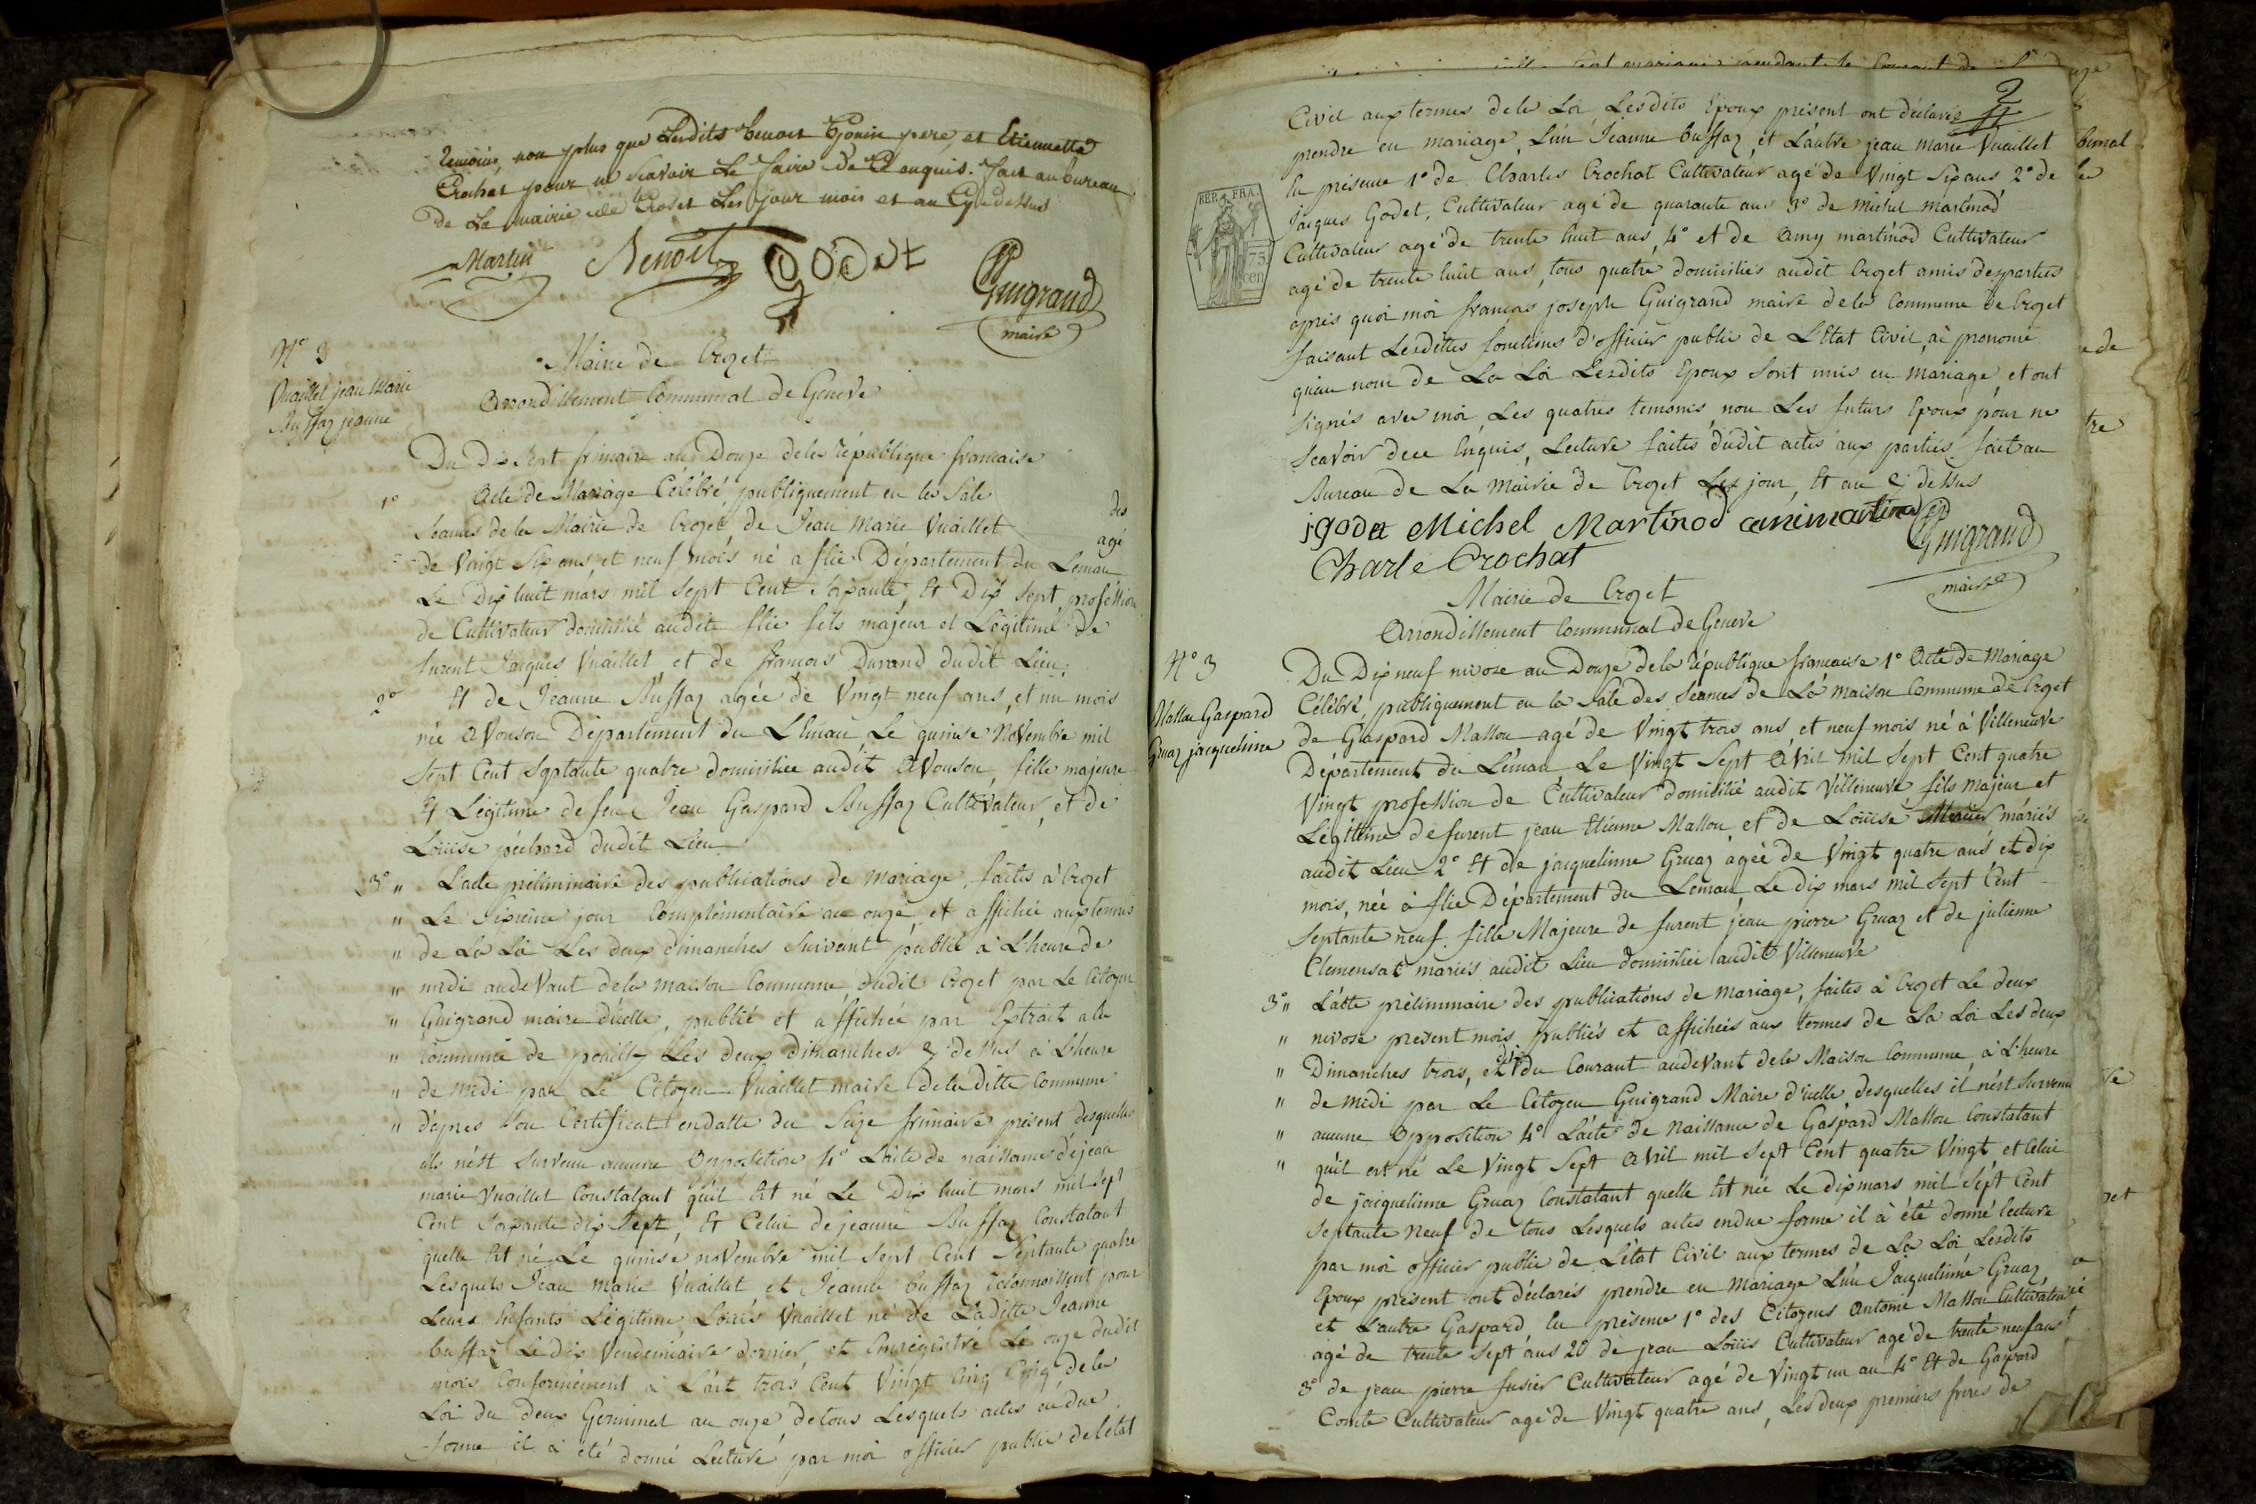 temoins non plus que Lesdits benoit Gonin pere, et Etiennette
Crochat pour ne Scavoir Le faire de Ce enquis. fait au bureau
de La mairie de Crozet Les jour mois et an Cy dessus
Martin Benoit GODET Guigrand
maire
N° 2
Vuaillet jean Marie
Buffaz jeanne
Mairie de Crozet
Arrondissement Communal de Geneve
Du Dix Sept frimaire an Douze dela République francaise
1° Acte de Mariage Célébré publiquement en la Sale des
Seances de la Mairie de Crozet de Jean Marie Vuaillet agé
de Vingt Six ans, et neuf mois né a flie Département du Leman
Le Dix huit mars mil Sept Cent Soixante, Et Dix Sept profession
de Cultivateur domicilié audit flie fils majeur et Légitime de
furent Jacques Vuaillet et de francois Durand dudit Lieu.
2° Et de Jeanne Buffaz agée de Vingt neuf ans, et un mois
née a Vouson Département du Léman Le quinse Novembre mil
Sept Cent Septante quatre domiciliee audit a Vouson, fille majeure
Et Légitime de feu Jean Gaspard Buffaz Cultivateur, et de
Louise péchard dudit Lieu
3° " L'acte préliminaire des publications de Mariage, faites à Crozet
" Le Sixieme jour Complémentaire an onze et affichée aux termes
" de La Loi Les deux dimanches Suivant publié à L'heure de
" midi audeVant dela maison Commune dudit Crozet par Le Citoyen
" Guigrand maire d'icelle, publié et affichée par Extrait a la
" Commune de pouilly Les deux Dimanches Cy dessus à L'heure
" de midi par Le Citoyen Vuaillet maire dela ditte Commune
" d'apres Son Certificat en datte du Seize frimaire présent desquelles
ils n'est Survenu aucune Opposition 4° L'acte de naissance de jean
marie Vuaillet Constatant qu'il Est né Le Dix huit mars mil Sept
Cent Soixante dix Sept, Et Celui de jeanne Buffaz Constatant
quelle Est né Le quinse novembre mil Sept Cent Septante quatre
Lesquels Jean Marie Vuaillet et Jeanne buffaz reconnoissent pour
Leurs Enfants Légitime Louis Vuaillet né de Laditte Jeanne
buffaz Le dix Vendemiaire dernier, et Enregistré Le onze dudit
mois Conformément à L'art trois Cent Vingt Cinq Cinq dela
Loi du deux Germinal an onze, de tous Lesquels actes en due
forme il à été donné Lecture par moi officier public de létat
2
Civil aux termes dela Loi Lesdits Epoux présent ont déclarés
prendre en mariage, L'un Jeanne buffaz, et L'autre jean marie Vuaillet
En présence 1° de Charles Crochat Cultivateur agé de Vingt Six ans 2° de
Jacques Godet, Cultivateur agé de quarante ans 3° de Michel martinod
Cultivateur agé de trente huit ans, 4° et de Amy martinod Cultivateur
agé de trente huit ans, tous quatre domiciliés audit Crozet amis des parties
après quoi moi francois joseph Guigrand maire dela Commune de Crozet
faisant Lesdittes fonctions d'officier public de L'Etat Civil, ai prononcé
qu'au nom de La Loi Lesdits Epoux Sont unis en Mariage, et ont
Signés avec moi, Les quatres temoins, non Les futurs Epoux pour ne
Scavoir dece Enquis, Lecture faites dudit actes aux parties. fait au
Bureau de La Mairie de Crozet Les jour, Et an Ci dessus
REP. FRA.
75
cen
j godet Michel Martinod ami martinod Guigrand
Charle Crochat maire
Mairie de Crozet
Arrondissement Communal de Geneve
N° 3
Mallou Gaspard
Gruaz jacquelinne
Du Dix neuf nivose an Douze dela République francaise 1° Acte de Mariage
Célébré publiquement en la Sale des Séances de La maison Commune de Crozet
de Gaspard Mallou agé de Vingt trois ans, et neuf mois né à Villeneuve
Département du Léman Le Vingt Sept Avril mil Sept Cent quatre
Vingt profession de Cultivateur domicilié audit Villeneuve fils majeur et
Légitime de furent jean Etienne Mallou, et de Louise mariés
audit Lieu 2° Et de jacquelinne Gruaz agée de Vingt quatre ans et dix
mois, née à flie Département du Leman Le dix mars mil Sept Cent
Septante neuf. fille Majeure de furent jean pierre Gruaz et de julienne
Clemensat mariés audit Lieu domiciliée audit Villeneuve
3° " L'acte préliminaire des publications de Mariage, faites à Crozet Le deux
" nivose present mois publiés et affichées aux termes de La Loi Les deux
" Dimanches trois, et dix du Courant audeVant dela Maison Commune, à L'heure
" de midi par Le Citoyen Guigrand Maire d'icelle desquelles il n'est Survenu
" aucune Opposition 4° L'acte de Naissance de Gaspard Mallou Constatant
" qu'il est né Le Vingt Sept Avril mil Sept Cent quatre Vingt et Celui
de jacquelinne Gruaz Constatant quelle Est née Le dix mars mil Sept Cent
Septante Neuf de tous Lesquels actes endue forme il à été donné lecture
par moi officier public de L'état Civil aux termes de La Loi Lesdits
Epoux présent ont déclarés prendre en Mariage L'un Jacquelinne Gruaz
et L'autre Gaspard, En présence 1° des Citoyens Antoine Mallou Cultivateur
agé de trente Sept ans 2° de jean Louis Cultivateur agé de trente neuf ans
3° de jean pierre fusier Cultivateur agé de Vingt un an 4° Et de Gaspard
Comte Cultivateur agé de Vingt quatre ans, Les deux premiers freres de